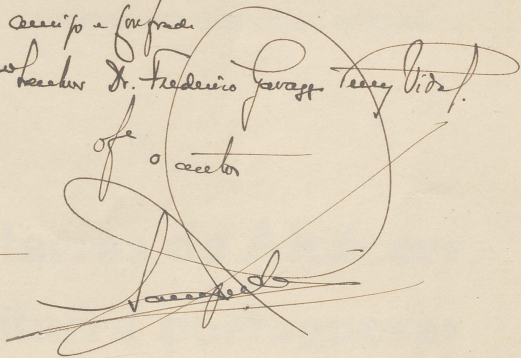 amigo e confrade
Senhor Dr. Frederico Gavazzo Perry Vidal.
ofe
o autor